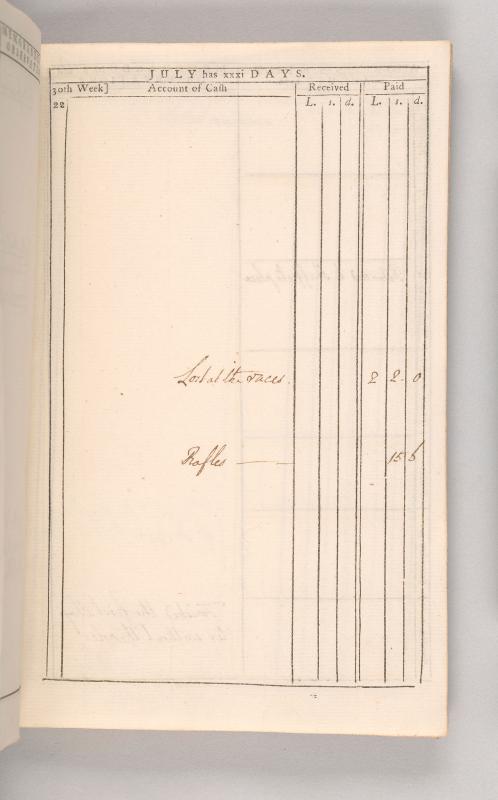 JULY has xxxi DAYS.
30th Week] Account of Cash Received Paid
22 L. s. d. L. s. d.
Lost at the races. 2 2. 0
Rafles 15 6